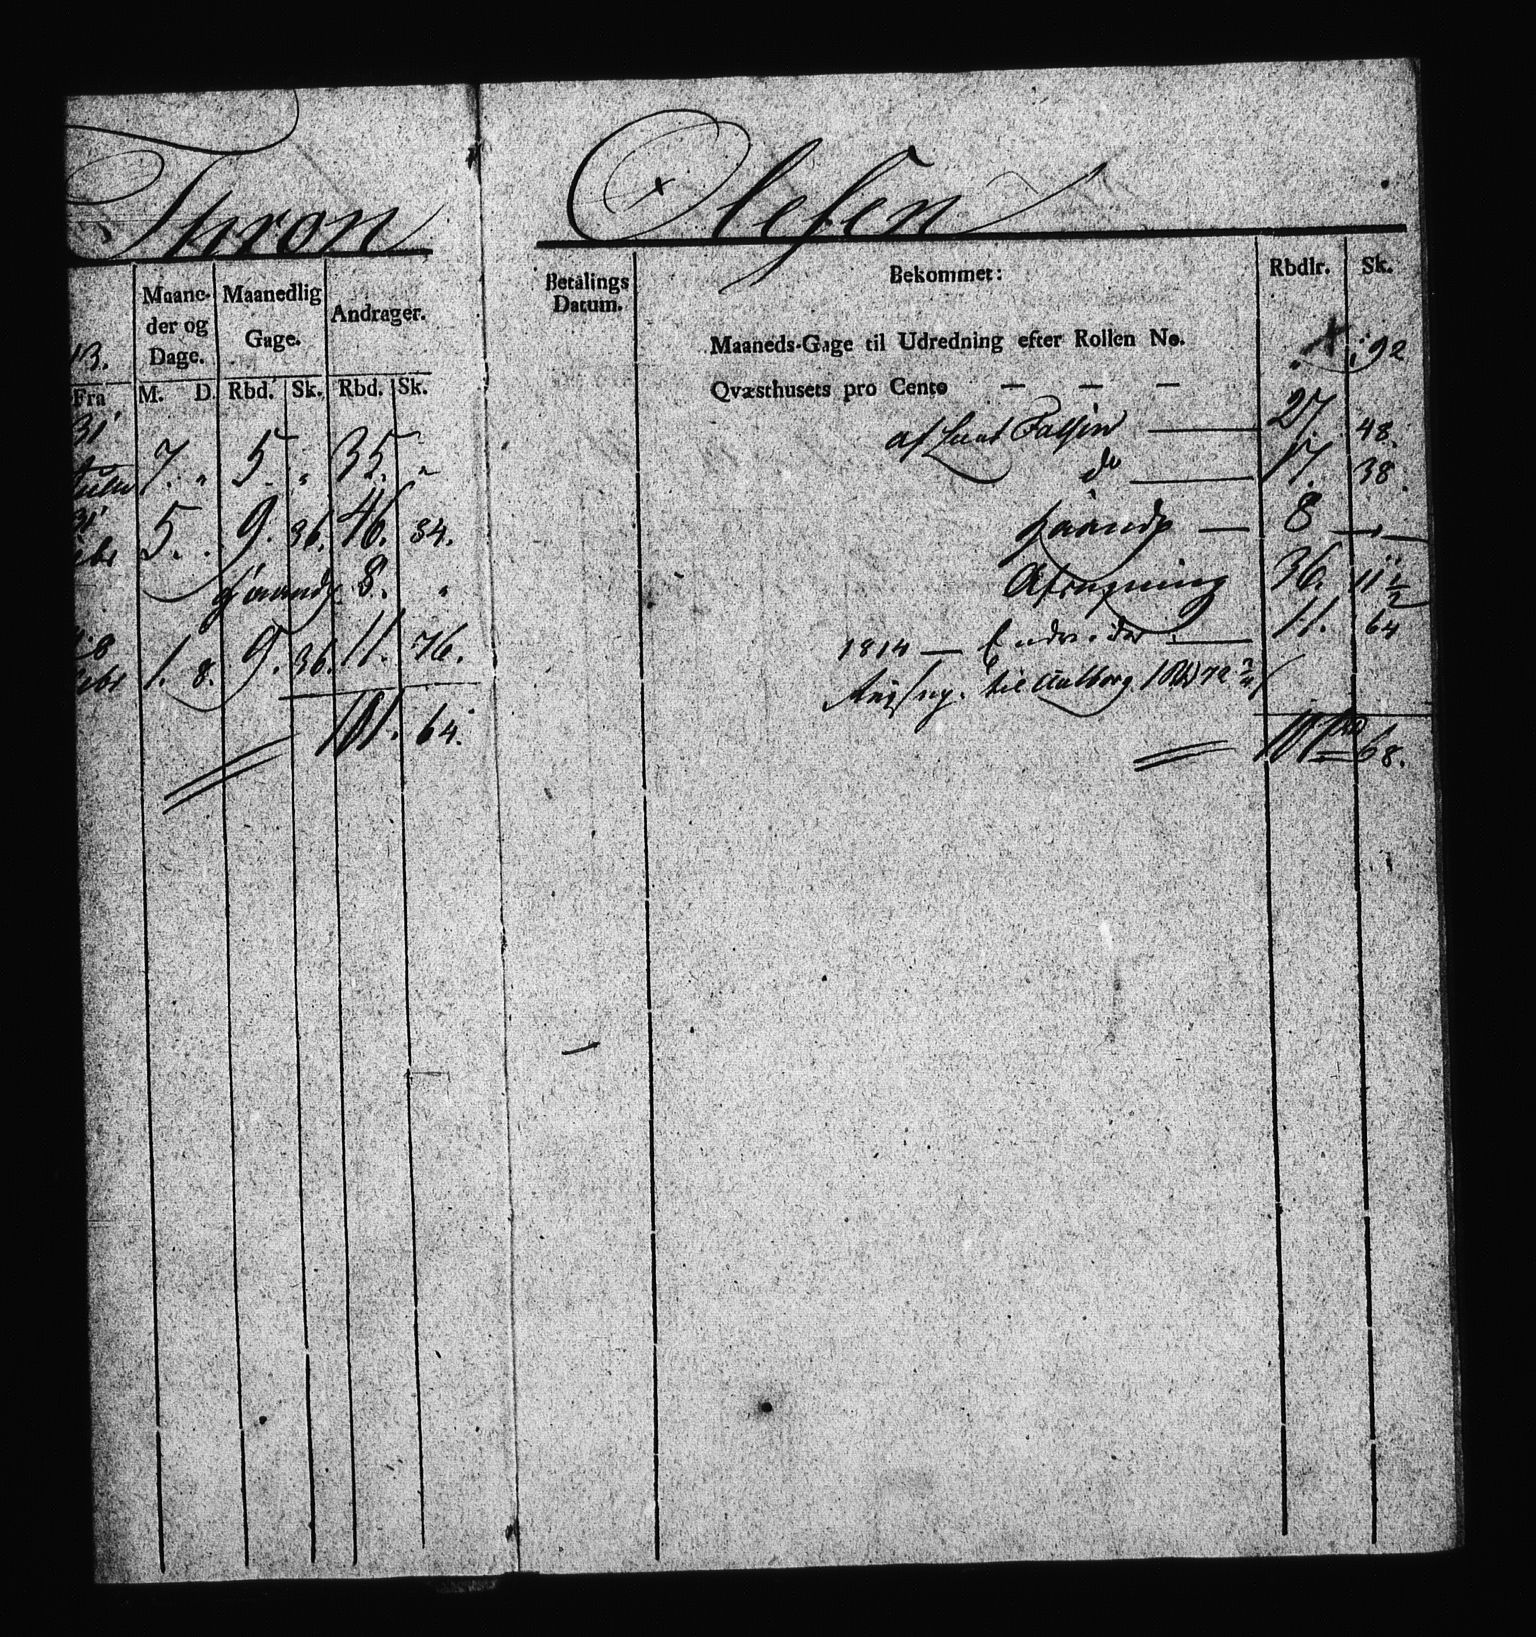 Thron Olesen
13.
Fra
Maane-
der og
Dage.
M. D.
Maanedlig
Gage.
Rbd. Sk.
Andrager.
Rbd. Sk.
31
7. „ 5 „ 35. „
31
5. „ 9. 36. 46. 84.
Haandp. 8. „
1. 8. 9. 36. 11. 76.
101. 64.
Betalings
Datum.
Bekommet: Rbdlr. Sk.
Maaneds-Gage til Udredning efter Rollen No. 92
Qvæsthusets pro Cento — — —
af Lieut — 27. 48.
do — 17. 38.
Haandp — 8 —
Afregning 36. 11 ½
1814 — 11. 64
til Aalborg 72
101 68.